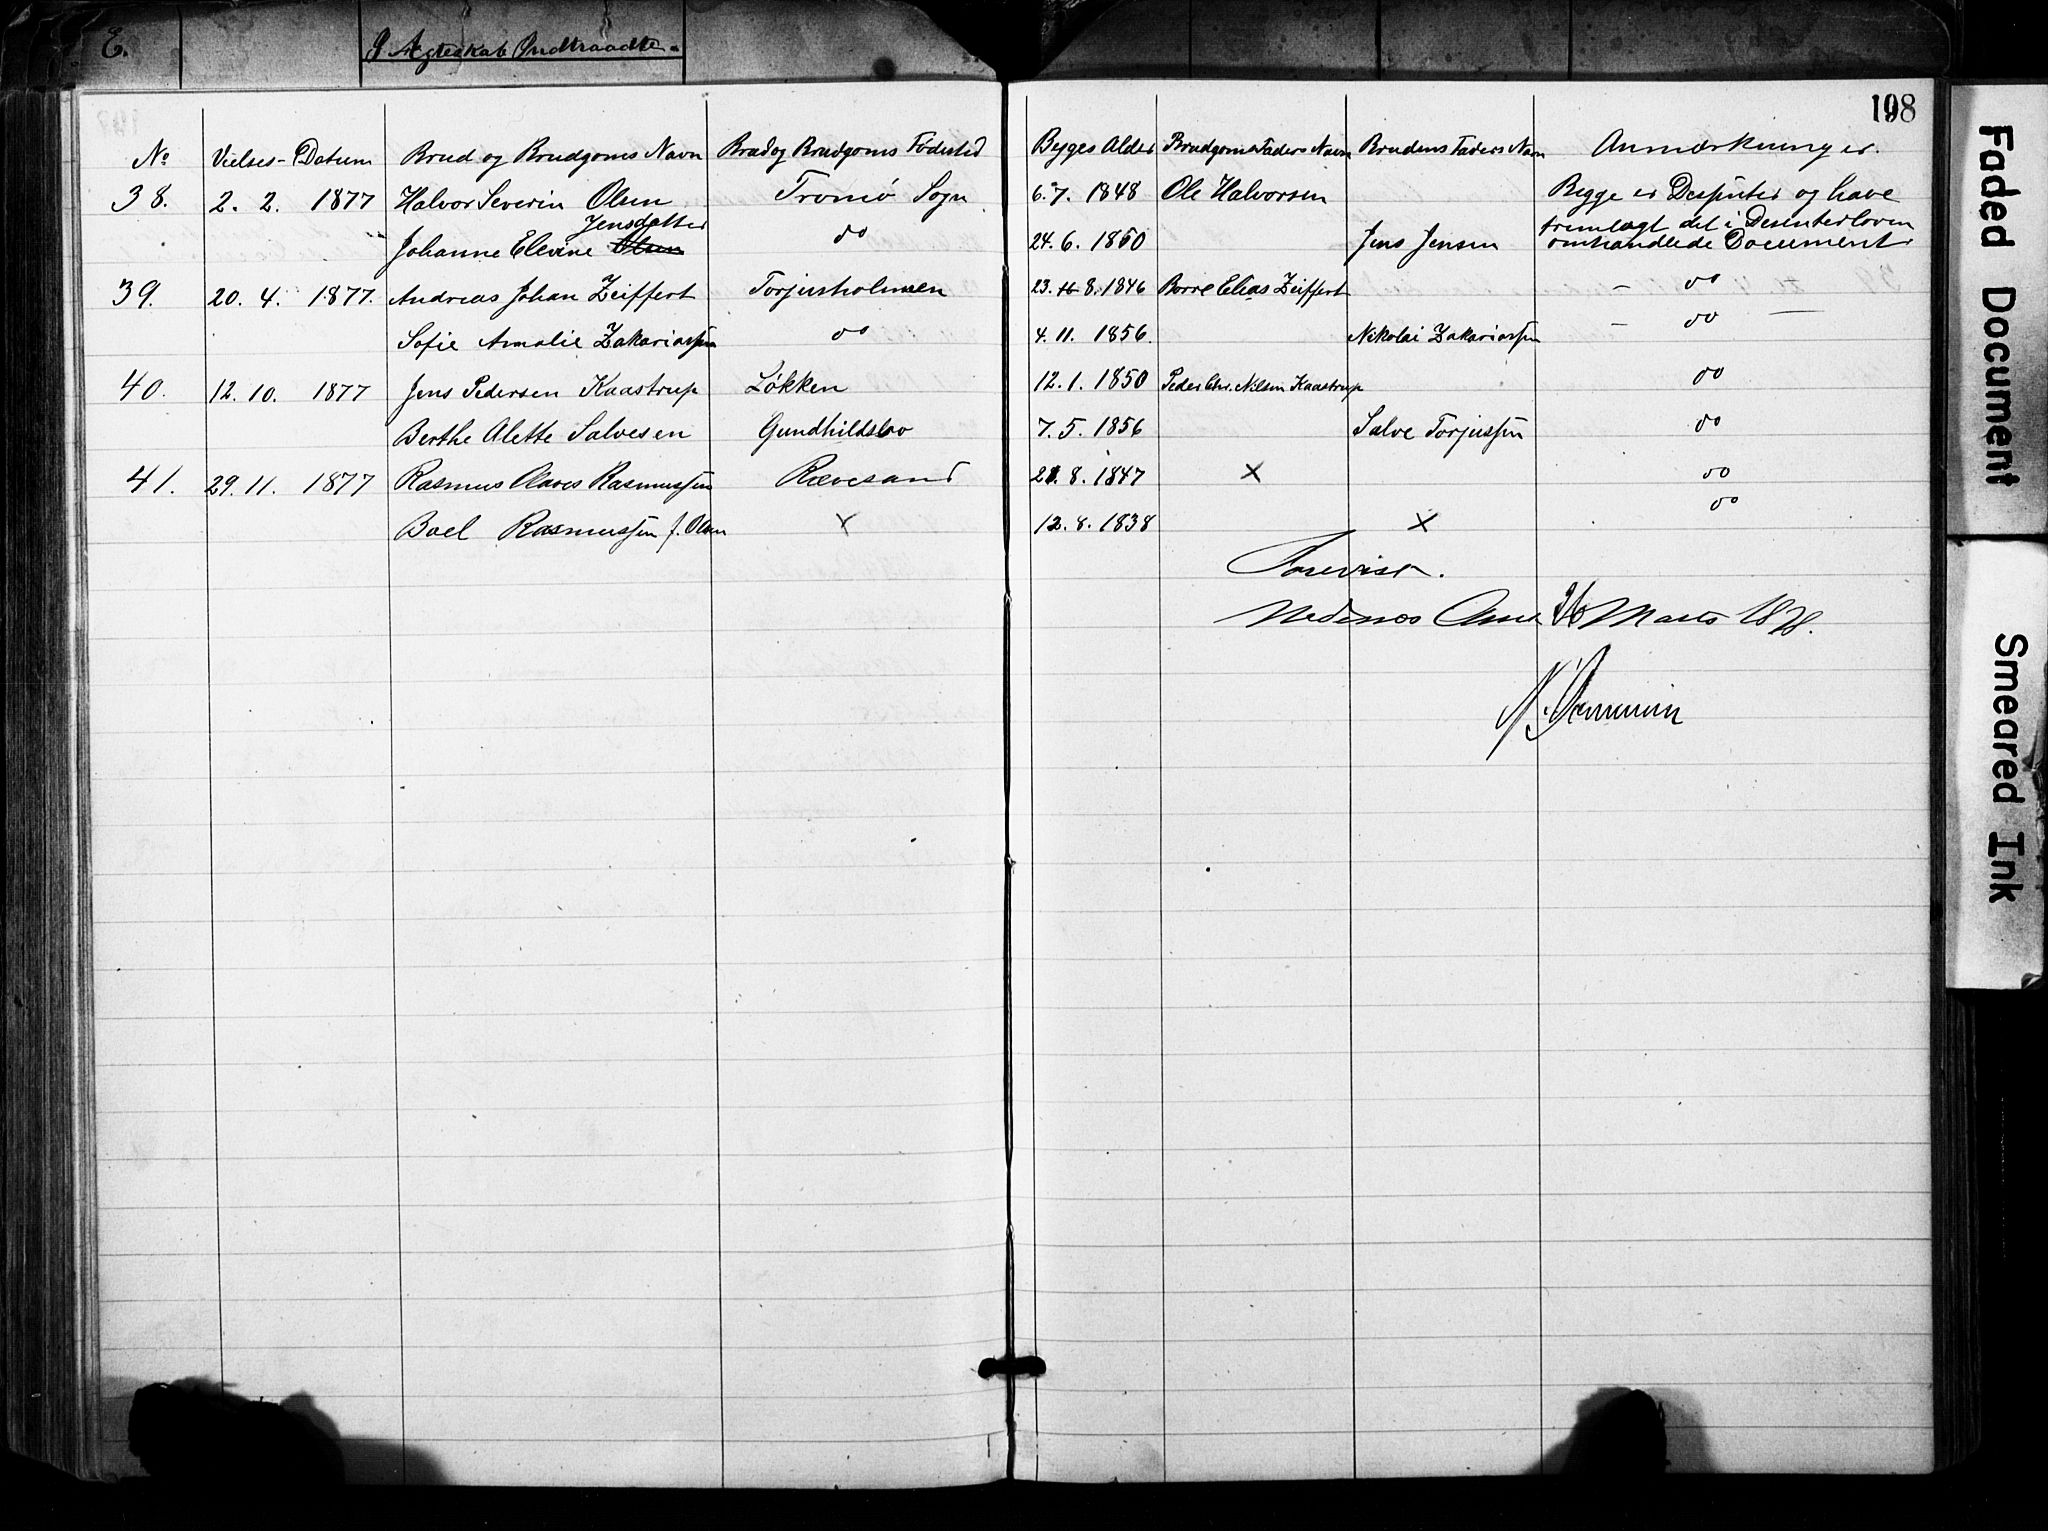 E. I Ægteskab Indtraadte.
198
No Vielses-Datum Brud og Brudgoms Navn Brud og Brudgoms Fødested Begges Alder Brudgoms Faders Navn Brudens Faders Navn Anmærkninger.
38. 2. 2. 1877 Halvor Severin Olsen Tromø Sogn 6.7. 1848 Ole Halvorsen Begge er Desenter og have
Jensdatter fremlagt det i Desenterloven
Johanne Elevine Olsen do 24. 6. 1850 Jens Jensen omhandlede Document
39. 20. 4. 1877. Andreas Johan Zeiffert Torjusholmen 23. 8. 1846 Borre Elias Zeiffert - do
Sofie Amalie Zakariassen do 4. 11. 1856. Nikolai Zakariassen - do -
40. 12. 10. 1877 Jens Pedersen Kaastrup Løkken 12. 1. 1850 Peder Chr. Nilsen Kaastrup do
Berthe Alette Salvesen Gundhildsbo 7. 5. 1856 Salve Torjussen do
41. 29. 11. 1877 Rasmus Olaves Rasmussen Rævesand 21. 8. 1847 x do
Boel Rasmussen f. Olsen x 12. 8. 1838 x do
Forevist.
Nedenes Amt 26 Marts 1878.
Faded Document
Smeared Ink